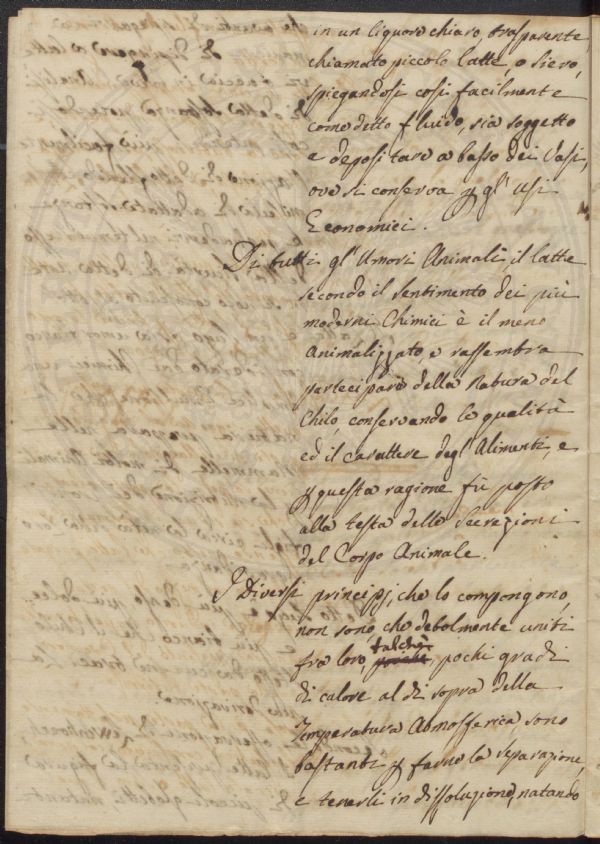 in un liquore chiaro, trasparente,
chiamato piccolo latte, o siero,
spiegandosi così facilmente
come detto fluido, sia soggetto
a depositare a basso dei Vasi,
ove si conserva p gl' usi
Economici.
Di tutti gl' Umori Animali, il latte
secondo il sentimento dei più
moderni Chimici è il meno
Animalizzato, e rassembra
partecipare della Natura del
Chilo, conservando le qualità
ed il carattere degl' Alimenti, e
p questa ragione fù posto
alla testa delle Secrezioni
del Corpo Animale.
I Diversi principj, che lo compongono,
non sono, che debolmente uniti
fra loro, talchè pochi gradi
di calore al di sopra della
Temperatura Atmosferica, sono
bastanti p farne la separazione,
e tenerli in dissoluzione, natando